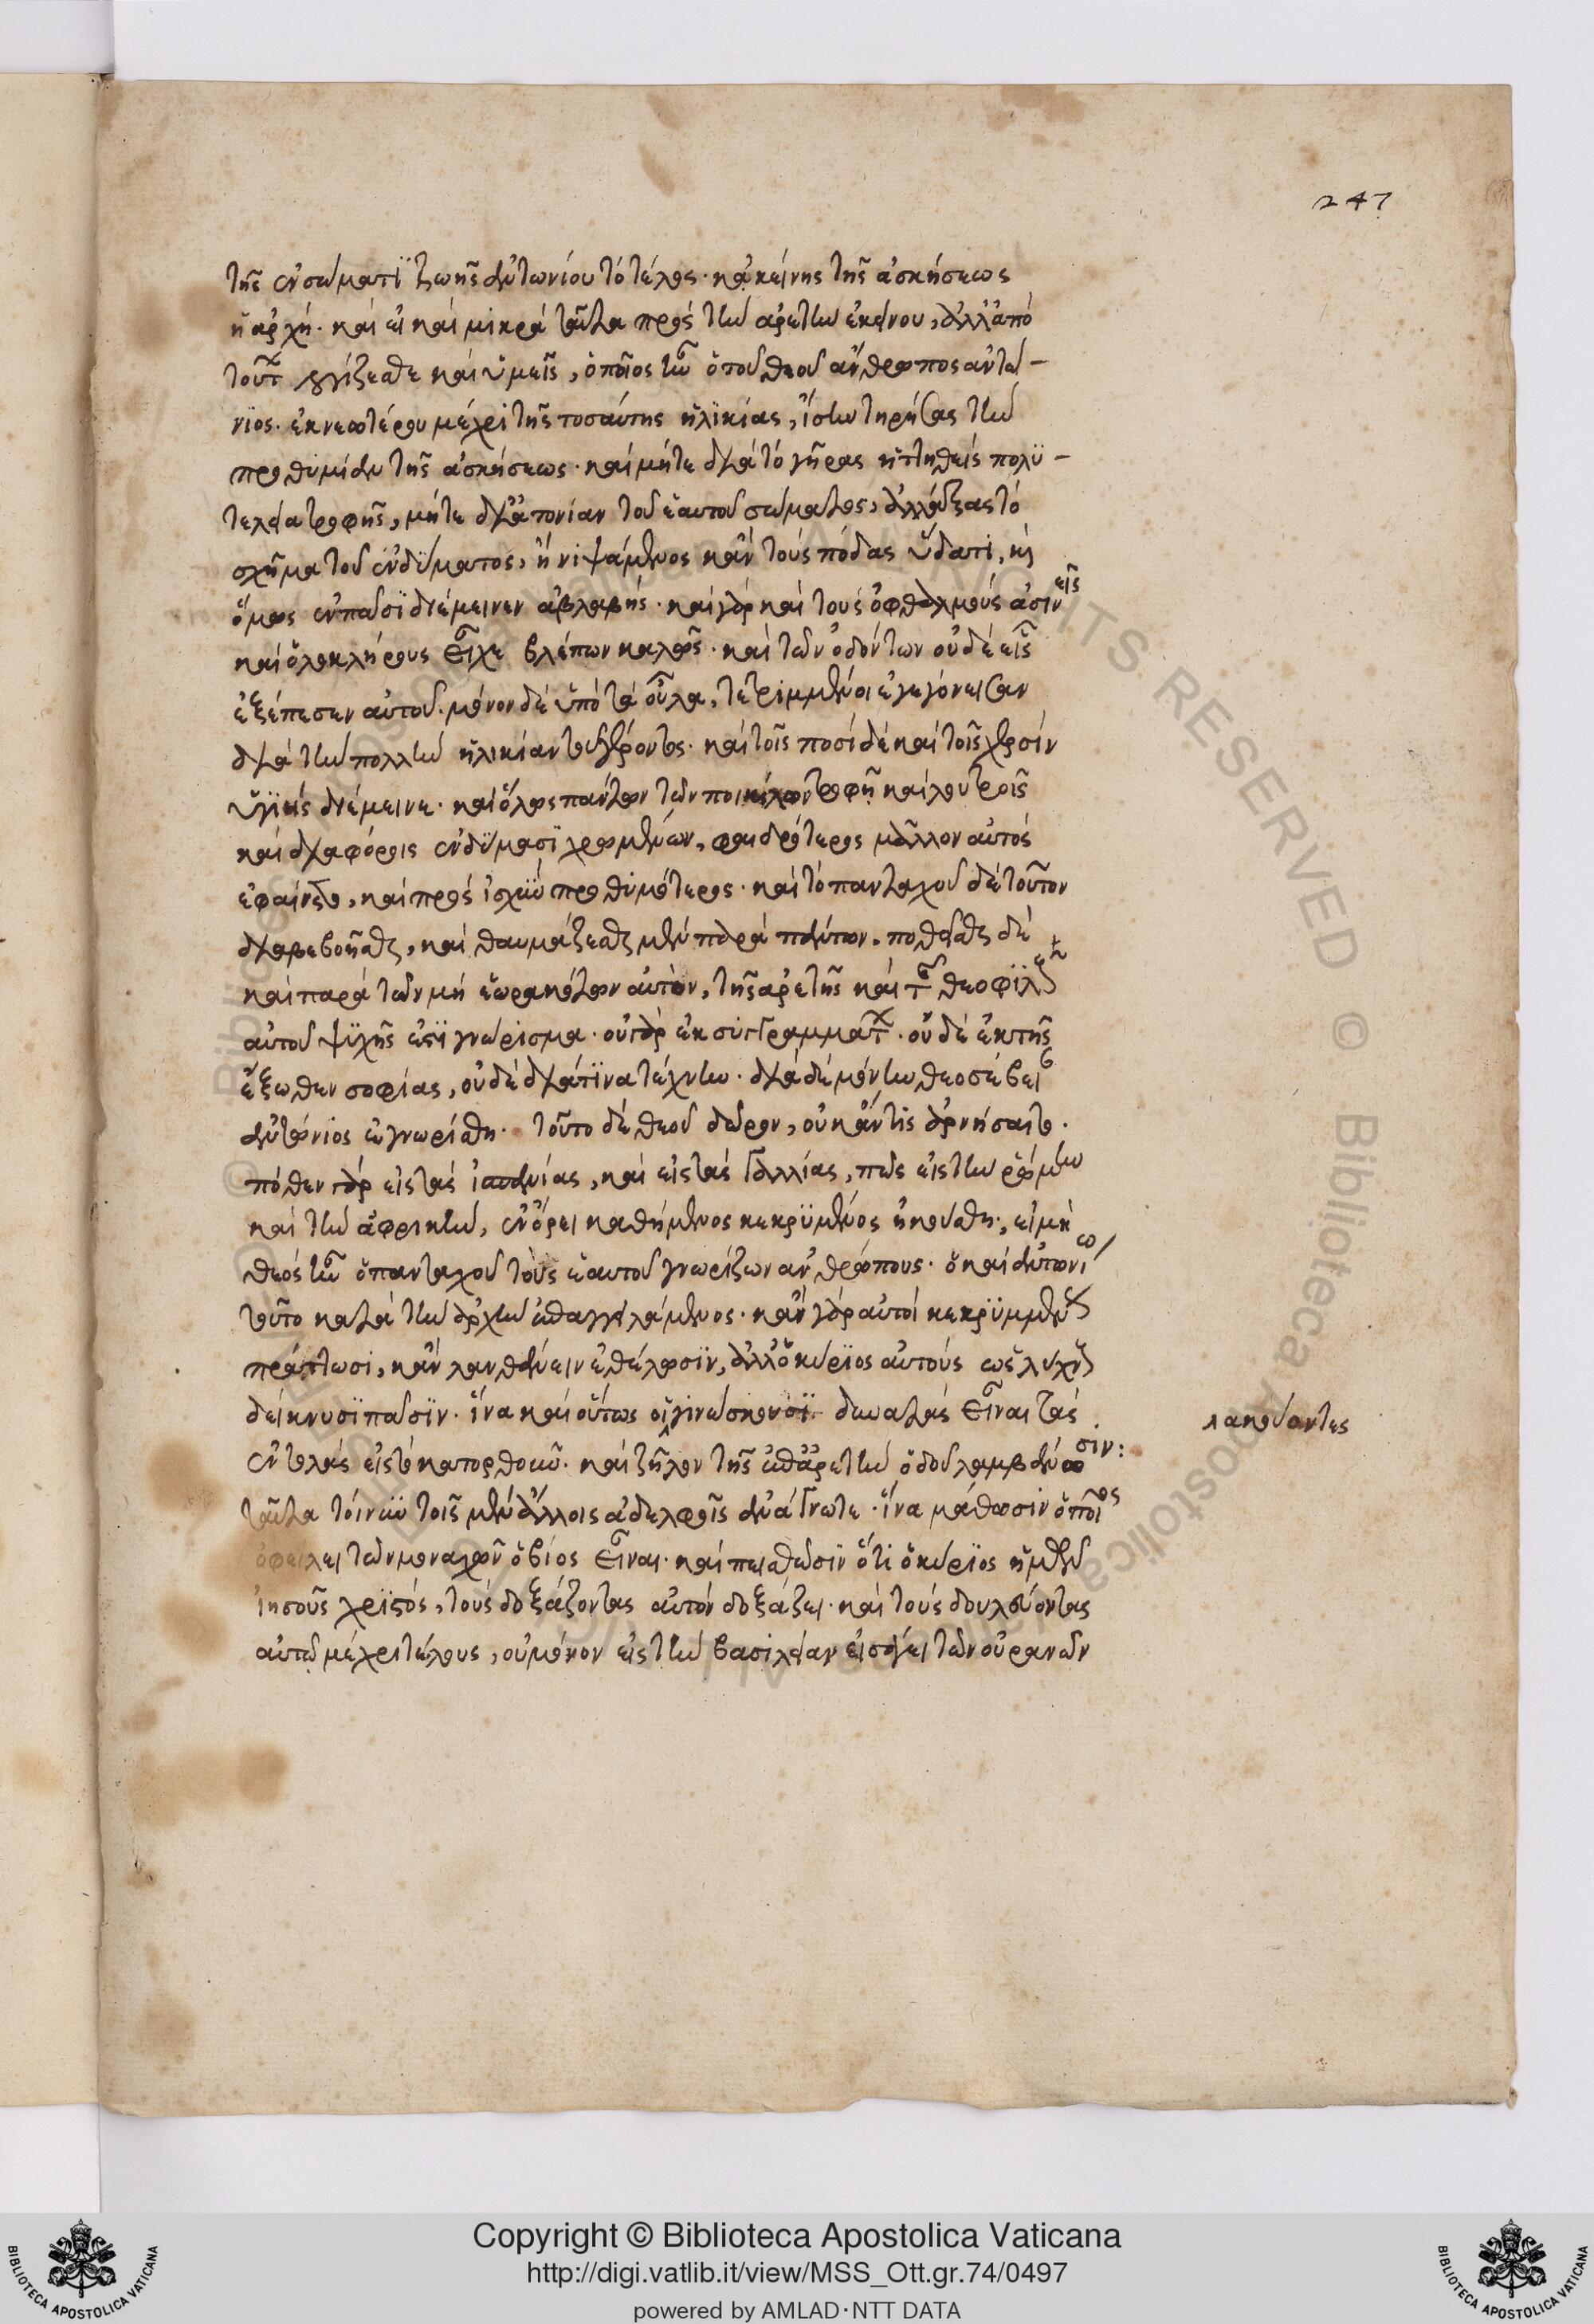 247
τῆς ἐν σώματϊ ζωῆς ἀντωνίου τὸ τέλος· κἀκείνης τῆς ἀσκήσεως
ἡ ἀρχή· καὶ εἰ καὶ μικρὰ ταῦτα πρὸς τὴν ἀρετὴν ἐκείνου, ἀλλ' ἀπὸ
τούτων λογίζεσθε καὶ ὑμεῖς, ὁποῖος ἦν ὁ τοῦ θεοῦ ἄνθρωπος ἀντώ-
νϊος· ἐκ νεωτέρου μέχρϊ τῆς τοσαύτης ἡλϊκίας, ἴσην τηρήσας τὴν
προθϋμίαν τῆς ἀσκήσεως· καὶ μήτε διὰ τὸ γῆρας ἡττηθεὶς πολϋ-
τελεία τροφῆς, μήτε δι' ἀτονίαν τοῦ ἑαυτοῦ σώματος, ἀλλάξας τὸ
σχῆμα τοῦ ἐνδύματος, ἢ νιψάμενος κἂν τοὺς πόδας ὕδατι, καὶ
ὅμως ἐν πᾶσϊ διέμεινεν ἀβλαβής· καὶ γὰρ καὶ τοὺς ὀφθαλμοὺς ἀσινεῖς
καὶ ὁλοκλήρους εἶχε βλέπων καλῶς· καὶ τῶν ὀδόντων οὐδὲ εἷς
ἐξέπεσεν αὐτοῦ· μόνον δὲ ὑπὸ τὰ οὖλα, τετριμμένοι ἐγεγόνεισαν
διὰ τὴν πολλὴν ἡλικίαν τοῦ γέροντος· καὶ τοῖς ποσὶ δὲ καὶ τοῖς χερσὶν
ὑγϊὴς διέμεινε· καὶ ὅλως πάντων τῶν ποικίλων τροφῆ καὶ λουτροῖς
καὶ διαφόροις ἐνδύμασϊ χρωμένων, φαιδρότερος μᾶλλον αὐτὸς
ἐφαίνετο, καὶ πρὸς ἰσχϋν προθϋμότερος· καὶ τὸ πανταχοῦ δὲ τοῦτον
διαβεβοῆσθαι, καὶ θαυμάζεσθαι μὲν παρὰ πάντων· ποθεῖσθαι δὲ
καὶ παρὰ τῶν μὴ ἑωρακότων αὐτὸν, τῆς ἀρετῆς καὶ τῆς θεοφϊλοῦς
αὐτοῦ ψϋχῆς ἐστϊ γνώρϊσμα· οὐ γὰρ ἐκ συγγραμμάτων· οὐδὲ ἐκ τῆς
ἔξωθεν σοφίας, οὐδὲ διά τϊνα τέχνην· διὰ δὲ μόνην θεοσέβειαν
ἀντώνιος ἐγνωρίσθη· τοῦτο δὲ θεοῦ δῶρον, οὐκ ἄν τις ἀρνήσαιτο·
πόθεν γὰρ εἰς τὰς ἱσπανίας, καὶ εἰς τὰς γαλλίας, πῶς εἰς τὴν ῥώμην
καὶ τὴν ἀφρικὴν, ἐν ὄρει καθήμενος κεκρϋμμένος ἠκούσθη, εἰ μὴ
θεὸς ἦν ὁ πανταχοῦ τοὺς ἑαυτοῦ γνωρίζων ἀνθρώπους· ὁ καὶ ἀντωνίω
τοῦτο κατὰ τὴν ἀρχὴν ἐπαγγειλάμενος· κἂν γὰρ αὐτοὶ κεκρϋμμένως
πράττωσι, κἂν λανθάνειν ἐθέλωσϊν, ἀλλ' ὁ κύρϊος αὐτοὺς ὡς λύχνους
δείκνυσϊ πᾶσϊν· ἵνα καὶ οὕτως οἱ γινώσκουσϊ δυνατὰς εἶναι τὰς
ἀκούοντες
ἐντολὰς εἰς τὸ κατορθοῦν· καὶ ζῆλον τῆς ἐπ' ἀρετὴν ὁδοῦ λαμβάνωσιν:
ταῦτα τοίνυν τοῖς μὲν ἄλλοις ἀδελφοῖς ἀνάγνωτε· ἵνα μάθωσιν ὁποῖος
ὀφείλει τῶν μοναχῶν ὁ βίος εἶναι· καὶ πεισθῶσϊν ὅτϊ ὁ κύρϊος ἡμῶν
ἰησοῦς χρϊστὸς, τοὺς δοξάζοντας αὐτὸν δοξάζει· καὶ τοὺς δουλεύοντας
αὐτῷ μέχρι τέλους, οὐ μόνον εἰς τὴν βασιλείαν εἰσάγει τῶν οὐρανῶν
Copyright © Biblioteca Apostolica Vaticana
http://digi.vatlib.it/view/MSS_Ott.gr.74/0497
powered by AMLAD·NTT DATA